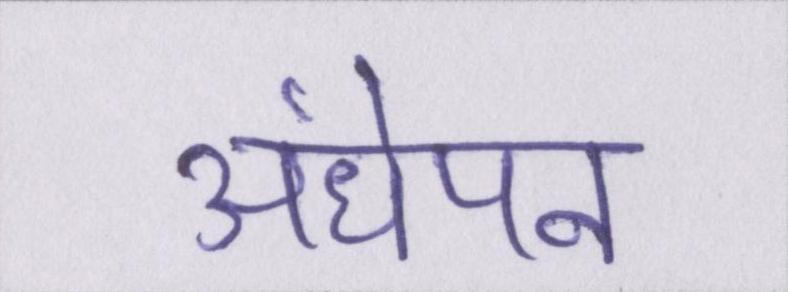 अंधेपन